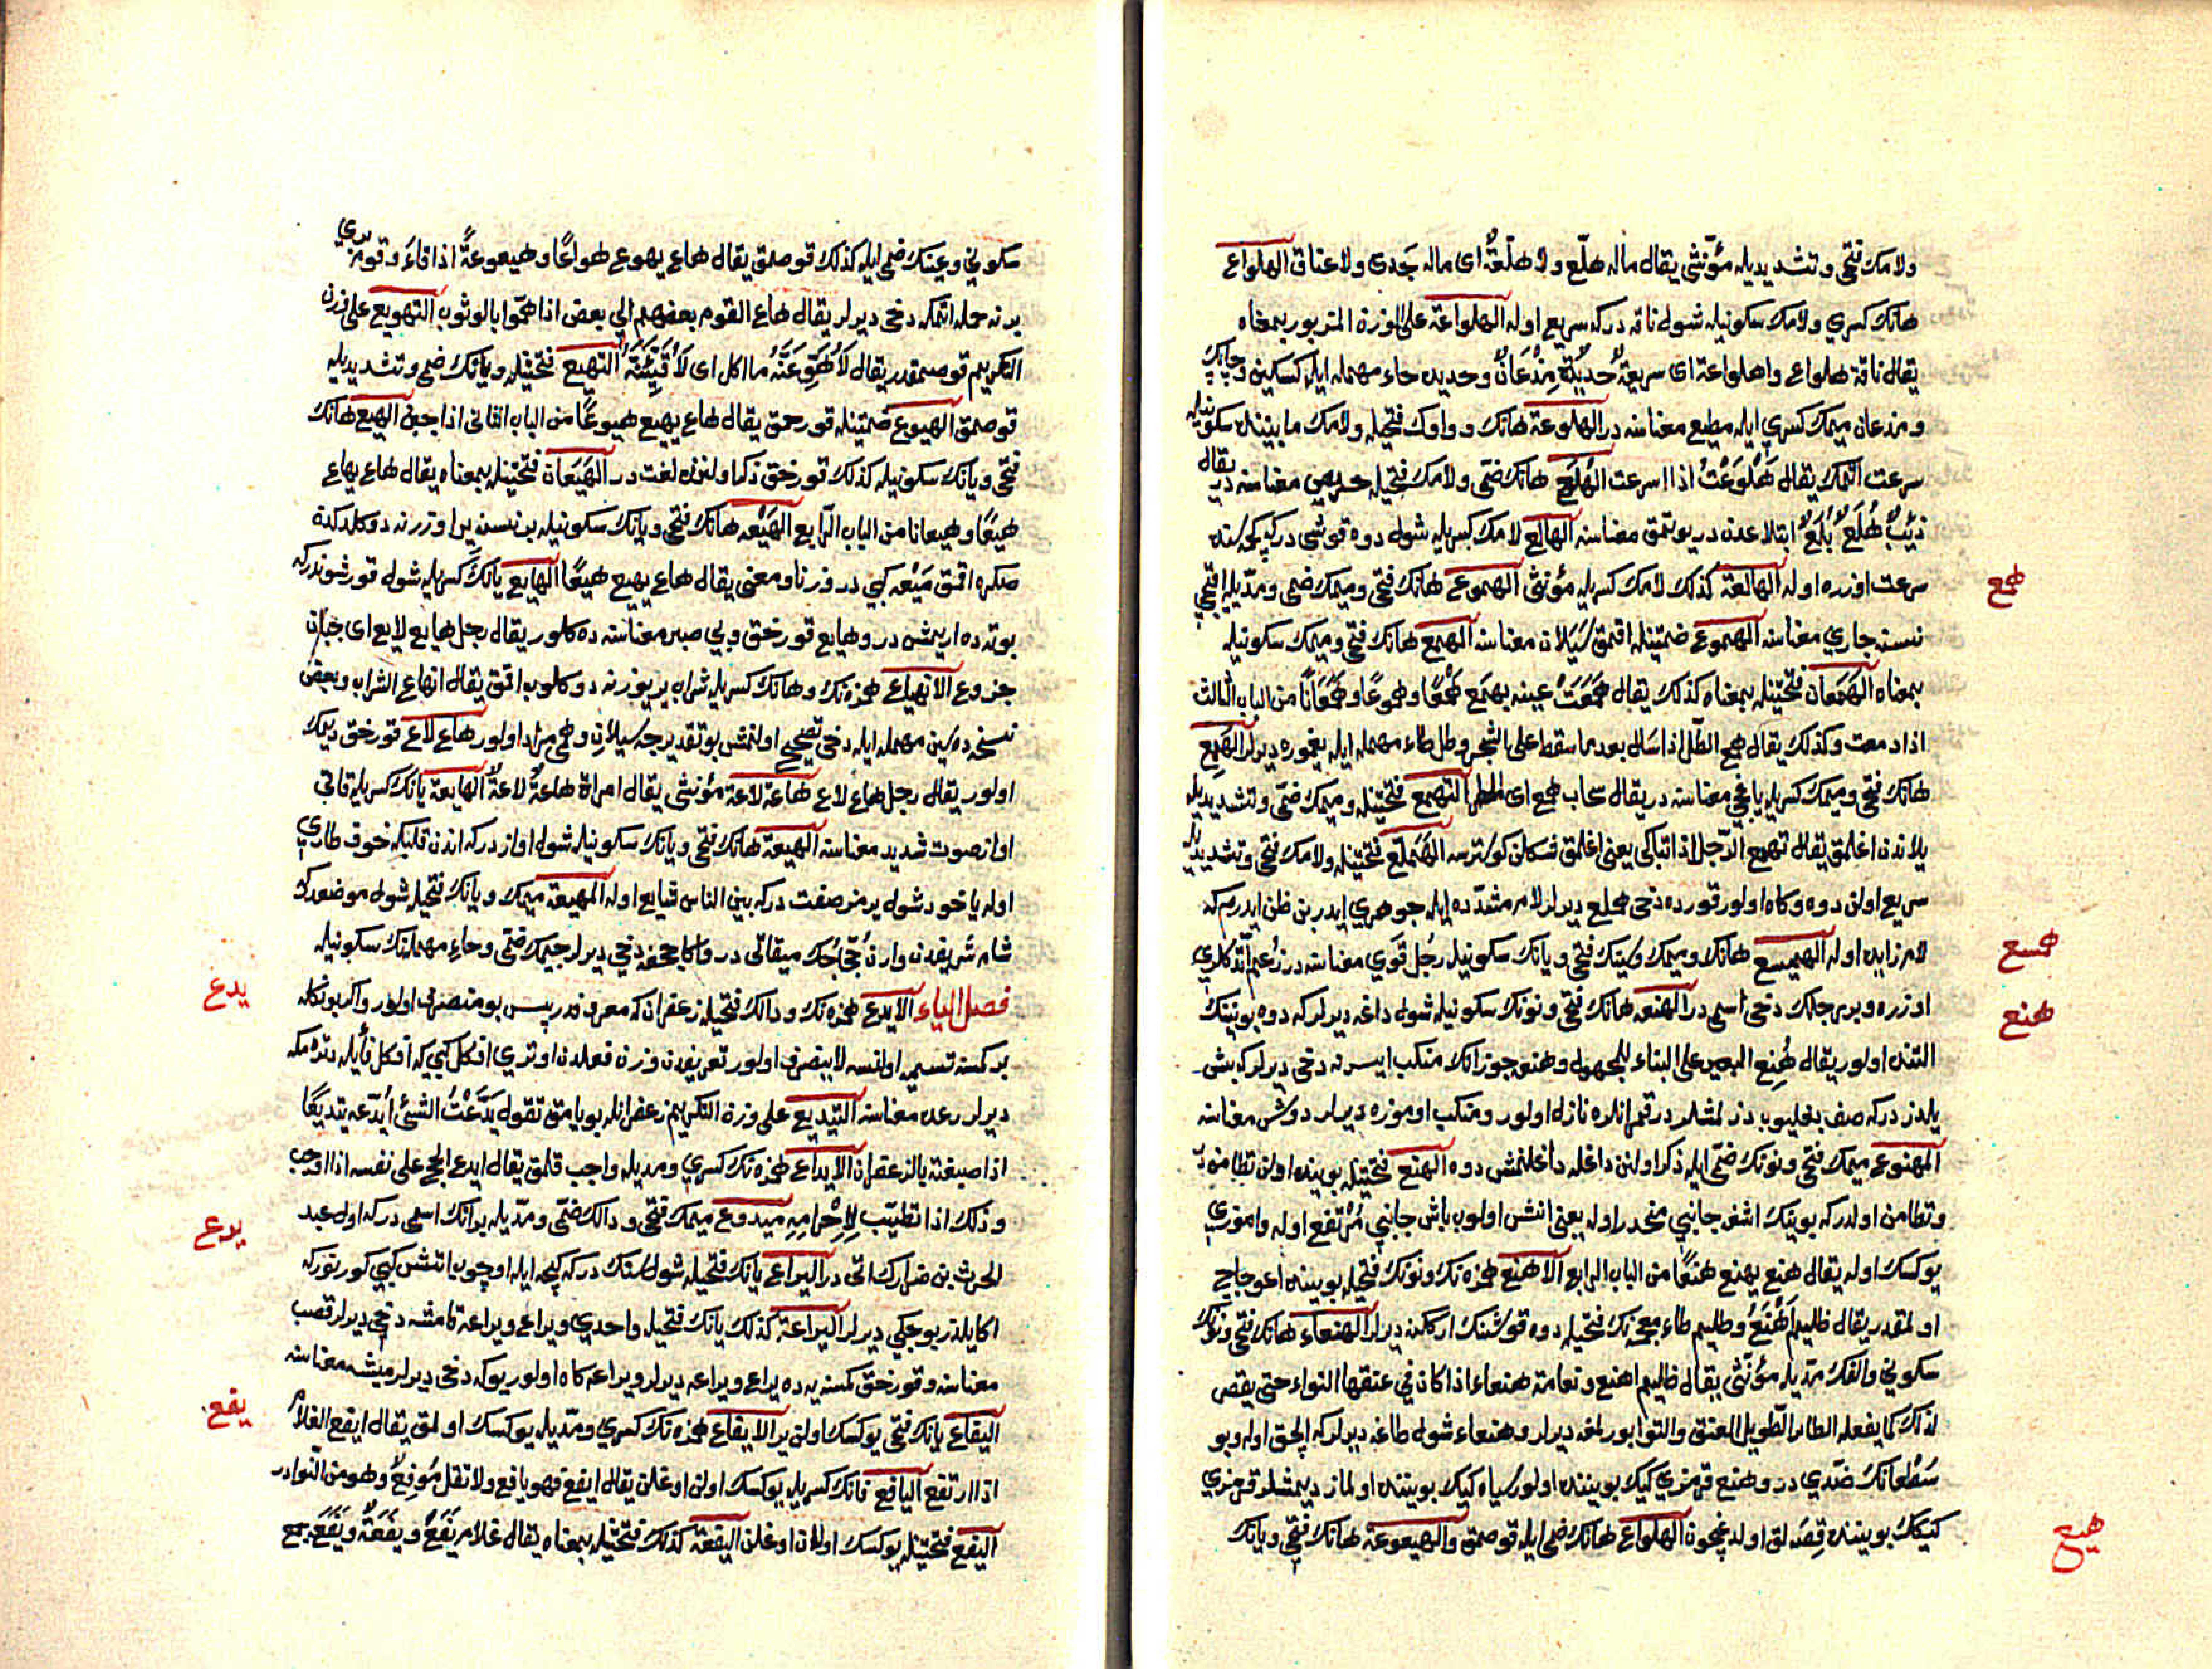 ولامك فتحى وتشديديله مؤنثى يقال ماله هلّع ولا هلّعةٌ اى ماله جدى ولا عناق الهلواع
هانك كسرى ولامك سكونيله شول ناقه دركه سريع اوله الهلواعة على الوزن المزبور بمعناه
يقال ناقة هلواع وهلواعة اى سريعة حديدة مذعان وحديد حاء مهمله ايله كسكين وچاپك
ومذعان ميمك كسرى ايله مطيع معناسنه در الهلوعة هانك وواوك فتحيله ولامك مابيننده سكونيله
سرعت اتمك يقال هَلْوَعْتُ اذا اسرعت الهُلَع هانك ضمى ولامك فتحيله حريص معناسنه در يقال
ذئب هُلَعٌ بُلَعٌ ابتلاعدن در يوتمق معناسنه الهالع لامك كسريله شول دوه قوشى دركه كچمسنده
سرعت اوزره اوله الهالعة كذلك لامك كسريله مؤنثى الهموع هانك فتحى وميمك ضمى ومديله اقيجى
همع
نسنه جارى معناسنه الهموع ضمتينله اقمق سَيَلان معناسنه الهمع هانك فتحى وميمك سكونيله
بمعناه الهَمَعان فتحتينله بمعناه كذلك يقال هَمَعَتْ عينه يهمع هَمْعًا وهموعًا وهَمَعَانًا من الباب الثالث
اذا دمعت وكذلك يقال همع الطلّ اذا سال بعد ما سقط على الشجر وطل طاء مهمله ايله يغموره ديرلر الهَمِع
هانك فتحى وميمك كسريله ياغجى معناسنه در يقال سحاب همع اى المطر التهمع فتحتينله وميمك ضمى وتشديديله
يلاندن اغلمق يقال تهمع الرّجل اذا تباكى يعنى اغلمق شكلن كوسترسه الهَمَلَّع فتحتينله ولامك فتحى وتشديديله
سريع اولن دوه وكاه اولور قورده دخى هملع ديرلر لام مشدده ايله جوهرى ايدر بن ظن ايدرم كه
لام زايد اوله الهميسع هانك وميمك وسينك فتحى ويانك سكونيله رجل قوى معناسنه در زعم اتدكلرى
همسع
اوزره وبر رجلك دخى اسمى در الهنعه هانك فتحى ونونك سكونيله شول داغه ديرلر كه دوه بوينينك
هنع
التنده اولور يقال هُنِع البعير على البناء للمجهول وهنعه جوزانك منكب ايسرنه دخى ديرلر كه بش
يلدز دركه صف بغليوب دزلمشلر در قمر انلره نازل اولور ومنكب اوموزه ديرلر دوش معناسنه
المهنوع ميمك فتحى ونونك ضمى ايله ذكر اولنن داغله داغلنمش دوه الهنع فتحتينله بوينده اولن تطامنه در
وتطامن اولدركه بوينك اشغه جانبى منحدر اوله يعنى انش اولوب باش جانبى مرتفع اوله واموزى
يوكسك اوله يقال هنع يهنع هنعًا من الباب الرابع الاهنع همزه نك ونونك فتحيله بوينده اعوجاج
اولمقدر يقال ظليم اَهْنَعُ وظليم ظاء معجمه نك فتحيله دوه قوشنك اركگنه ديرلر الهنعاء هانك فتحى ونونك
سكونى والفك مديله مؤنثى يقال ظليم اهنع ونعامة هنعاء اذا كان فى عنقها التواء حتى يقصر
لذلك كما يفعله الطائر الطويل العنق والتوا بورلمغه ديرلر وهنعاء شول طاغه ديرلر كه الچق اوله وبو
سَطْعانك ضدى در وهنع قرمزى كيك بويننده اولور سياه كيك بويننده اولماز ديمشلر قرمزى
كيكك بويننده قِصَرلق اولدغيچون الهواع هانك ضمى ايله قوصمق والهيعوعة هانك فتحى ويانك
هيع
سكونى وعينك ضمى ايله كذلك قوصمق يقال هاع يهوع هواعًا وهيعوعةً اذا قاءَ وقوم برى
برنه حمله اتمكه دخى ديرلر يقال هاع القوم بعضهم الى بعض اذا همّوا بالوثوب التهويع على وزن
التكريم قوصمقدر يقال لاُهَوِّعَنَّهُ ما اكل اى لاُقَيِّئَنَّهُ التهيع فتحتينله ويانك ضمى وتشديديله
قوصمق الهيوع ضمتينله قورحمق يقال هاع يهيع هيوعًا من الباب الثانى اذا جبن الهيع هانك
فتحى ويانك سكونيله كذلك قورخمق ذكر اولنن لغت در الهَيَعَان فتحتينله بمعناه يقال هاع يهاع
هيعًا وهيعانا من الباب الرّابع الهَيْعه هانك فتحى ويانك سكونيله بر نسنه ير اوزرنه دوكلدكدن
صكره اقمق مَيْعه كبى در وزنا ومعنى يقال هاع يهيع هيعًا الهايع يانك كسريله شول قورشوندركه
بوته ده اريمش در وهايع قورخق وبى صبر معناسنه ده كلور يقال رجل هايع لايع اى جبان
جزوع الانهياع همزه نك وهانك كسريله شراب ير يوزرنه دوكلوب اقمق يقال انهاع الشراب وبعض
نسخه ده سين مهمله ايله دخى تصحيح اولنمش بو تقديرجه سيلان وهمى مراد اولور هاع لاع قورخق ديمك
اولور يقال رجل هاع لاع هاعة لاعة مؤنثى يقال امراة هاعةٌ لاعةٌ الهايعة يانك كسريله قاتى
اواز صوت شديد معناسنه الهيعة هانك فتحى ويانك سكونيله شول اواز دركه اندن قلبكه خوف طارى
اوله ياخود شول يرمز صفت دركه بين الناس شايع اوله المهيعة ميمك ويانك فتحيله شول موضعدركه
شام شريفدن وارن حجّاجك ميقاتى در واكا جحفه دخى ديرلر جيمك ضمى وحاء مهمله نك سكونيله
فصل الياء الايدع همزه نك ودالك فتحيله زعفران كه معروفدر پس بو متصرف اولور واكر بونكله
يدع
بر كمسنه تسميه اولنسه لاينصرف اولور تعريفدن وزن فعلدن اوترى افكل كبى كه افكل فأيله دتره مكه
ديرلر رعده معناسنه التيديع على وزن التكريم زعفرانله بويامق تقول يَدَّعْتُ الشئَ اُيَدِّعه تيديعًا
اذا صبغته بالزعفران الايداع همزه نك كسرى ومديله واجب قلمق يقال ايدع الحج على نفسه اذا اوجب
وذلك اذا تطيّب لِاِحْرامِهِ ميدوع ميمك فتحى ودالك ضمّى ومدّيله بر آتك اسمى دركه اول عبد
الحرث بن ضرارك اتى در اليراع يانك فتحيله شول سنك دركه كيجه ايله اوچوب اتش كبى كورنور كه
يرع
اكا يلدز بوجكى ديرلر اليراعة كذلك يانك فتحيله واحدى ويراع ويراعة قامشه دخى ديرلر قصب
معناسنه وقورخق كمسنه يه ده يراع ويراعه ديرلر ويراعه كاه اولور بوكه دخى ديرلر ميشه معناسنه
اليفاع يانك فتحى يوكسك اولن ير الايفاع همزه نك كسرى ومدّيله يوكسك اولمق يقال ايفع الغلام
يفع
اذا ارتفع اليافع فانك كسريله يوكسك اولن اوغلن يقال ايفع فهو يافع ولا تقل مُوفِعٌ وهو من النّوادر
اليفع فتحتينله يوكسك اولان اوغلن اليفعة كذلك فتحتينله بمعناه يقال غلام يَفَعٌ ويَفَعَةٌ ويَفَعَ جمع